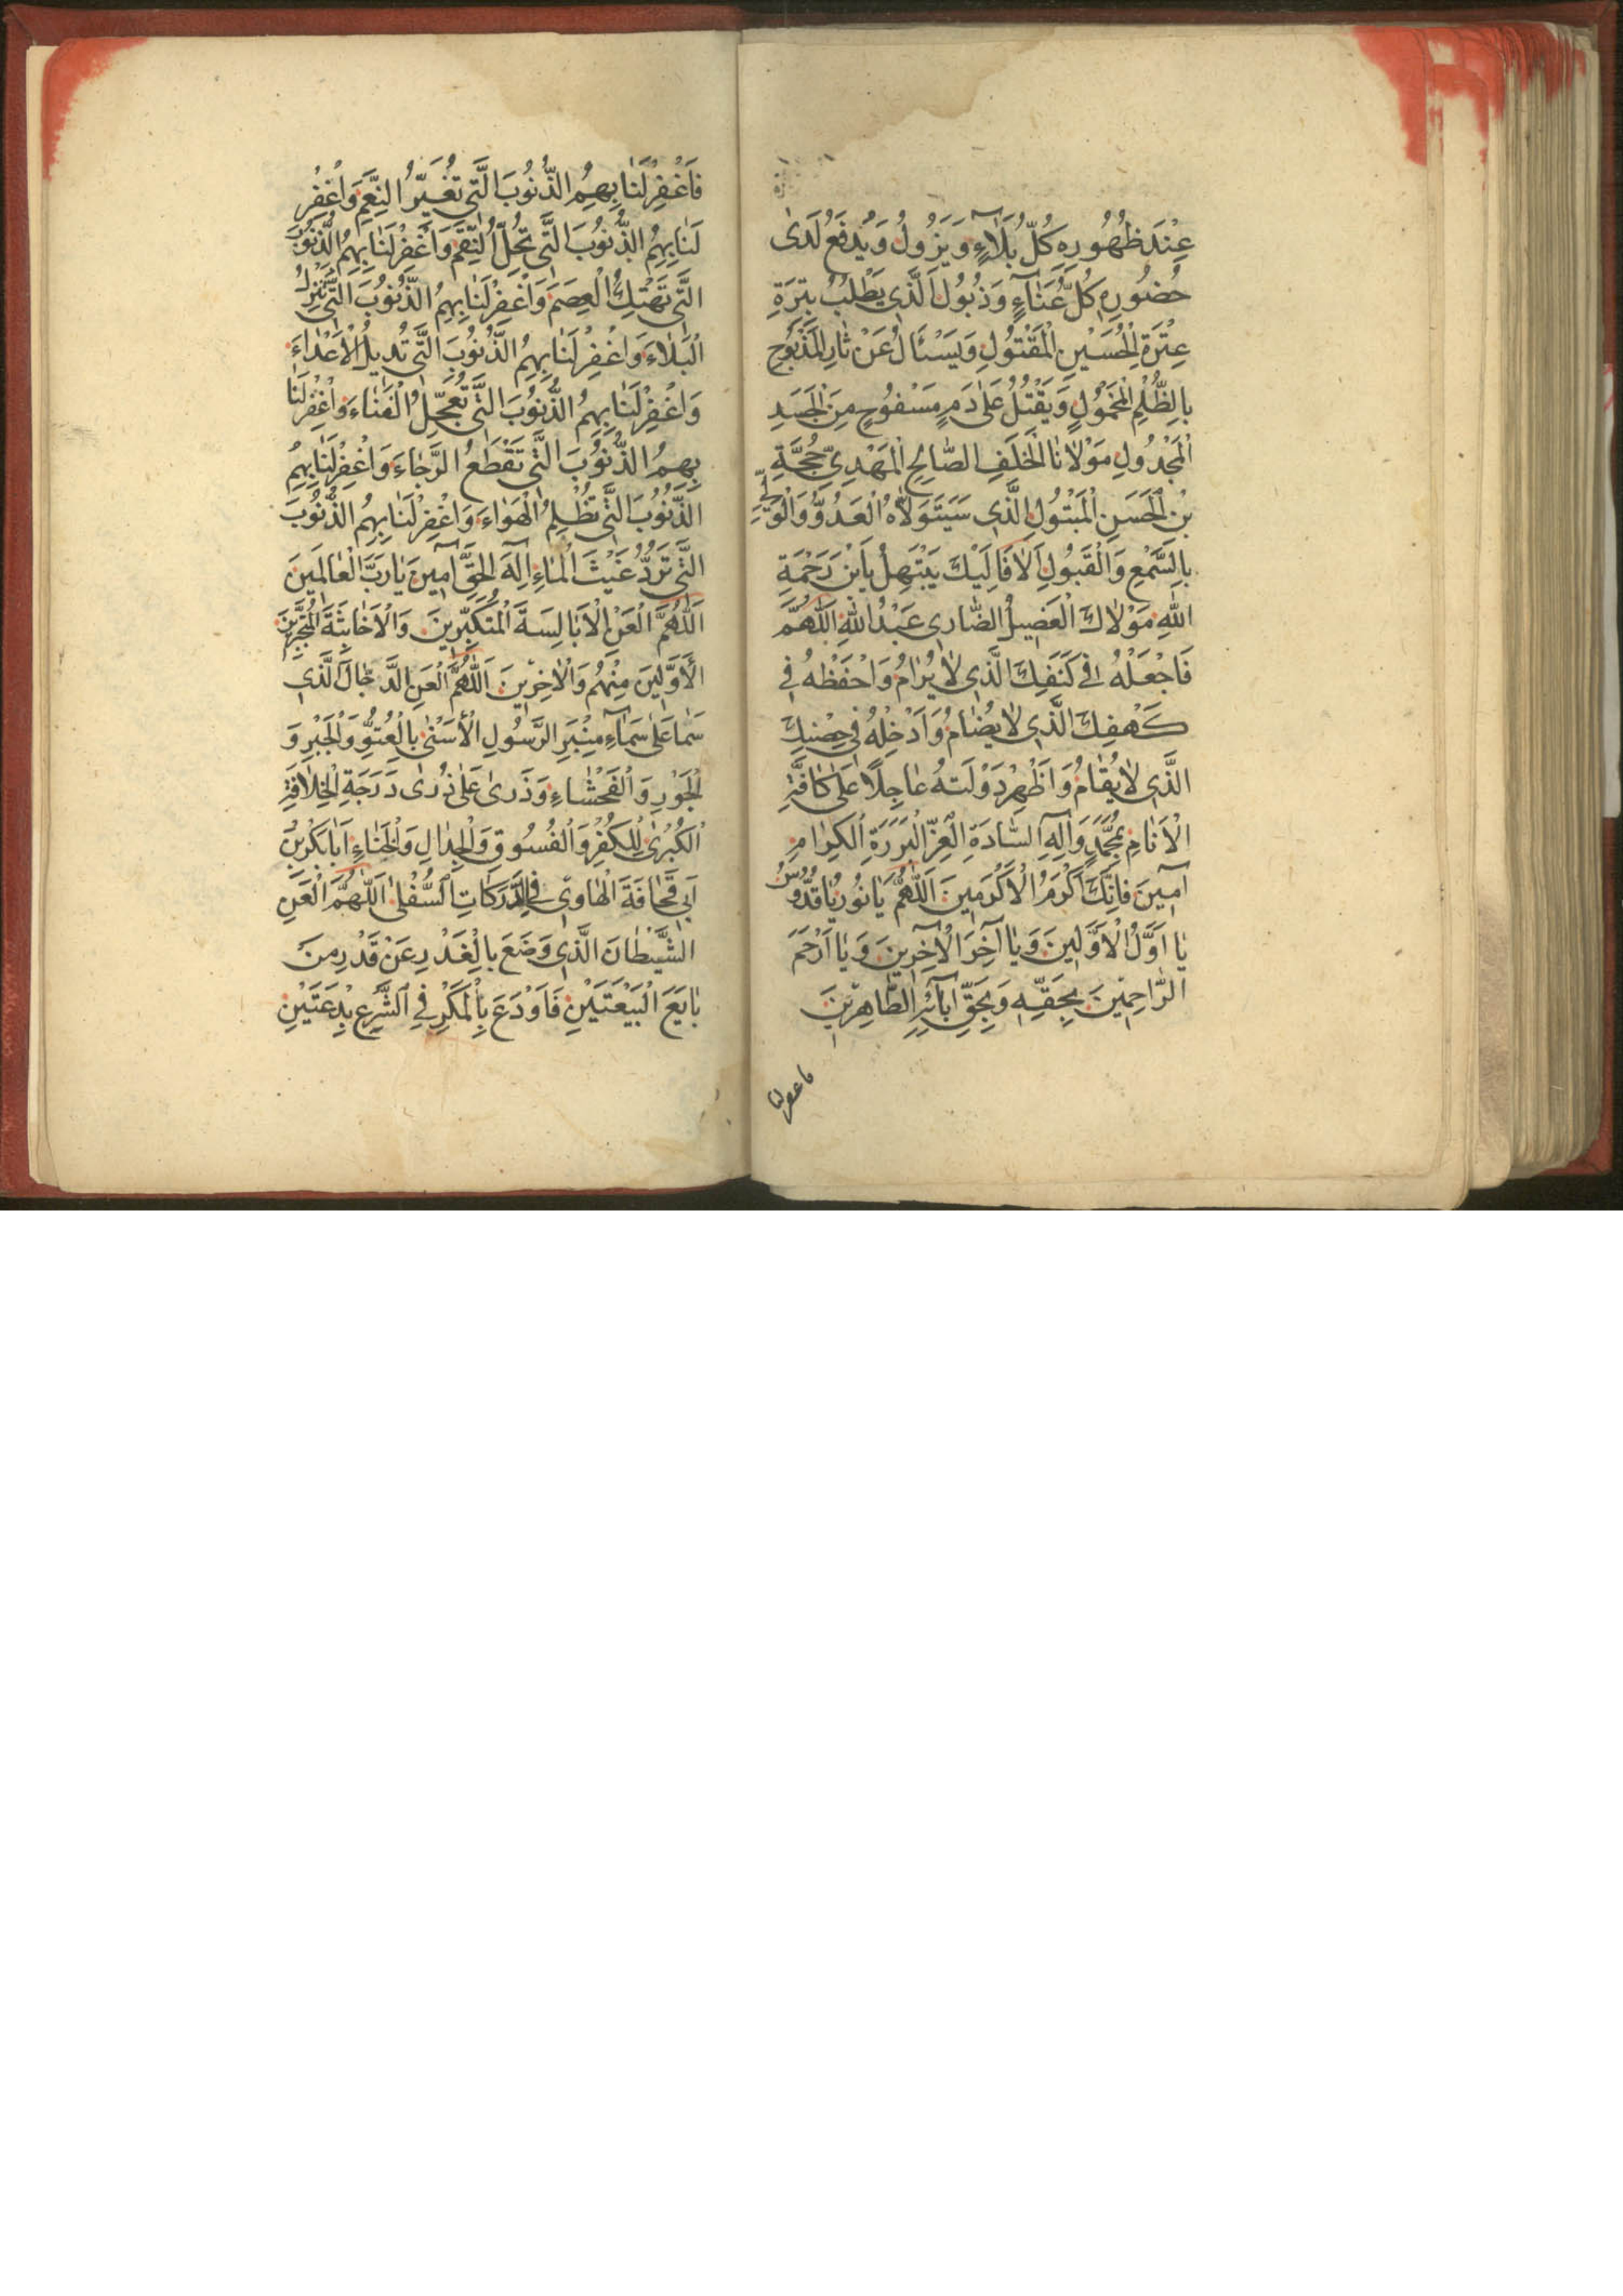 عِنْدَ ظُهُورِهِ كُلُّ بَلَآءٍ وَيَزُولُ وَيُدْفَعُ لَدىٰ
حُضُورِهِ كُلُّ عَنَآءٍ وَذُبُولٍ اَلَّذِي يَطْلُبُ بِتِرَةِ
عِتْرَةِ الْحُسَيْنِ الْمَقْتُولِ وَيَسْئَالُ عَنْ ثَارِ الْمَذْبُوحِ
بِالظُّلْمِ الْمَحْمُولِ وَيَقْتُلُ عَلىٰ دَمٍ مَسْفُوحٍ مِنَ الْجَسَدِ
الْمَجْدُولِ مَوْلَانَا الْخَلَفِ الصَّالِحِ الْمَهْدِيِّ حُجَّةِ
بْنِ الْحَسَنِ الْمَبْتُولِ الَّذِي سَيَتَوَلَّاهُ الْعَدُوُّ وَالْوَلِيُّ
بِالسَّمْعِ وَالْقَبُولِ اَلَا فَاِلَيْكَ يَبْتَهِلُ يَابْنَ رَحْمَةِ
اللهِ مَوْلَاكَ الْعَضِيلُ الضَّارِي عَبْدُ اللهِ اَللّٰهُمَّ
فَاجْعَلْهُ فِي كَنَفِكَ الَّذِي لَا يُرَامُ وَاحْفَظْهُ فِي
كَهْفِكَ الَّذِي لَا يُضَامُ وَاَدْخِلْهُ فِي حِصْنِكَ
الَّذِي لَا يُقَامُ وَاَظْهِرْ دَوْلَتَهُ عَاجِلًا عَلىٰ كَافَّةِ
الْاَنَامِ بِمُحَمَّدٍ وَآلِهِ السَّادَةِ الْغُرِّ الْبَرَرَةِ الْكِرَامِ
آمِينَ فَاِنَّكَ اَكْرَمُ الْاَكْرَمِينَ اَللّٰهُمَّ يَا نُورُ يَا قُدُّوسُ
يَا اَوَّلُ الْاَوَّلِينَ وَيَا آخِرَ الْآخِرِينَ وَيَا اَرْحَمَ
الرَّاحِمِينَ بِحَقِّهِ وَبِحَقِّ آبَائِهِ الطَّاهِرِينَ
فاغفر لنا
فَاغْفِرْ لَنَا بِهِمُ الذُّنُوبَ الَّتِي تُغَيِّرُ النِّعَمَ وَاغْفِرْ
لَنَا بِهِمُ الذُّنُوبَ الَّتِي تُحِلُّ النِّقَمَ وَاغْفِرْ لَنَا بِهِمُ الذُّنُوبَ
الَّتِي تَهْتِكُ الْعِصَمَ وَاغْفِرْ لَنَا بِهِمُ الذُّنُوبَ الَّتِي تُنْزِلُ
الْبَلَاءَ وَاغْفِرْ لَنَا بِهِمُ الذُّنُوبَ الَّتِي تُدِيلُ الْاَعْدَاءَ
وَاغْفِرْ لَنَا بِهِمُ الذُّنُوبَ الَّتِي تُعَجِّلُ الْفَنَاءَ وَاغْفِرْ لَنَا
بِهِمُ الذُّنُوبَ الَّتِي تَقْطَعُ الرَّجَاءَ وَاغْفِرْ لَنَا بِهِمُ
الذُّنُوبَ الَّتِي تُظْلِمُ الْهَوَاءَ وَاغْفِرْ لَنَا بِهِمُ الذُّنُوبَ
الَّتِي تَرُدُّ غَيْثَ الْمَاءِ اِلٰهَ الْحَقِّ آمِينَ يَا رَبَّ الْعَالَمِينَ
اَللّٰهُمَّ الْعَنِ الْاَبَالِسَةَ الْمُتَكَبِّرِينَ وَالْاَخَابِثَةَ الْمُتَجَبِّرِينَ
الْاَوَّلِينَ مِنْهُمْ وَالْاٰخِرِينَ اَللّٰهُمَّ الْعَنِ الدَّجَّالَ الَّذِي
سَمَا عَلىٰ سَمَآءِ مِنْبَرِ الرَّسُولِ الْاَسْنىٰ بِالْعُتُوِّ وَالْجَبْرِ وَ
الْجَوْرِ وَالْفَحْشَاءِ وَذَرىٰ عَلىٰ ذُرىٰ دَرَجَةِ الْخِلَافَةِ
الْكُبْرىٰ لِلْكُفْرِ وَالْفُسُوقِ وَالْجِدَالِ وَالْخَنَاءِ اَبَا بَكْرِ بْنِ
اَبِي قُحَافَةَ الْهَاوِي فِي الدَّرَكَاتِ السُّفْلىٰ اَللّٰهُمَّ الْعَنِ
الشَّيْطَانَ الَّذِي وَضَعَ بِالْغَدْرِ عَنْ قَدْرِ مَنْ
بَايَعَ الْبَيْعَتَيْنِ فَاَوْدَعَ بِالْمَكْرِ فِي الشَّرْعِ بِدْعَتَيْنِ